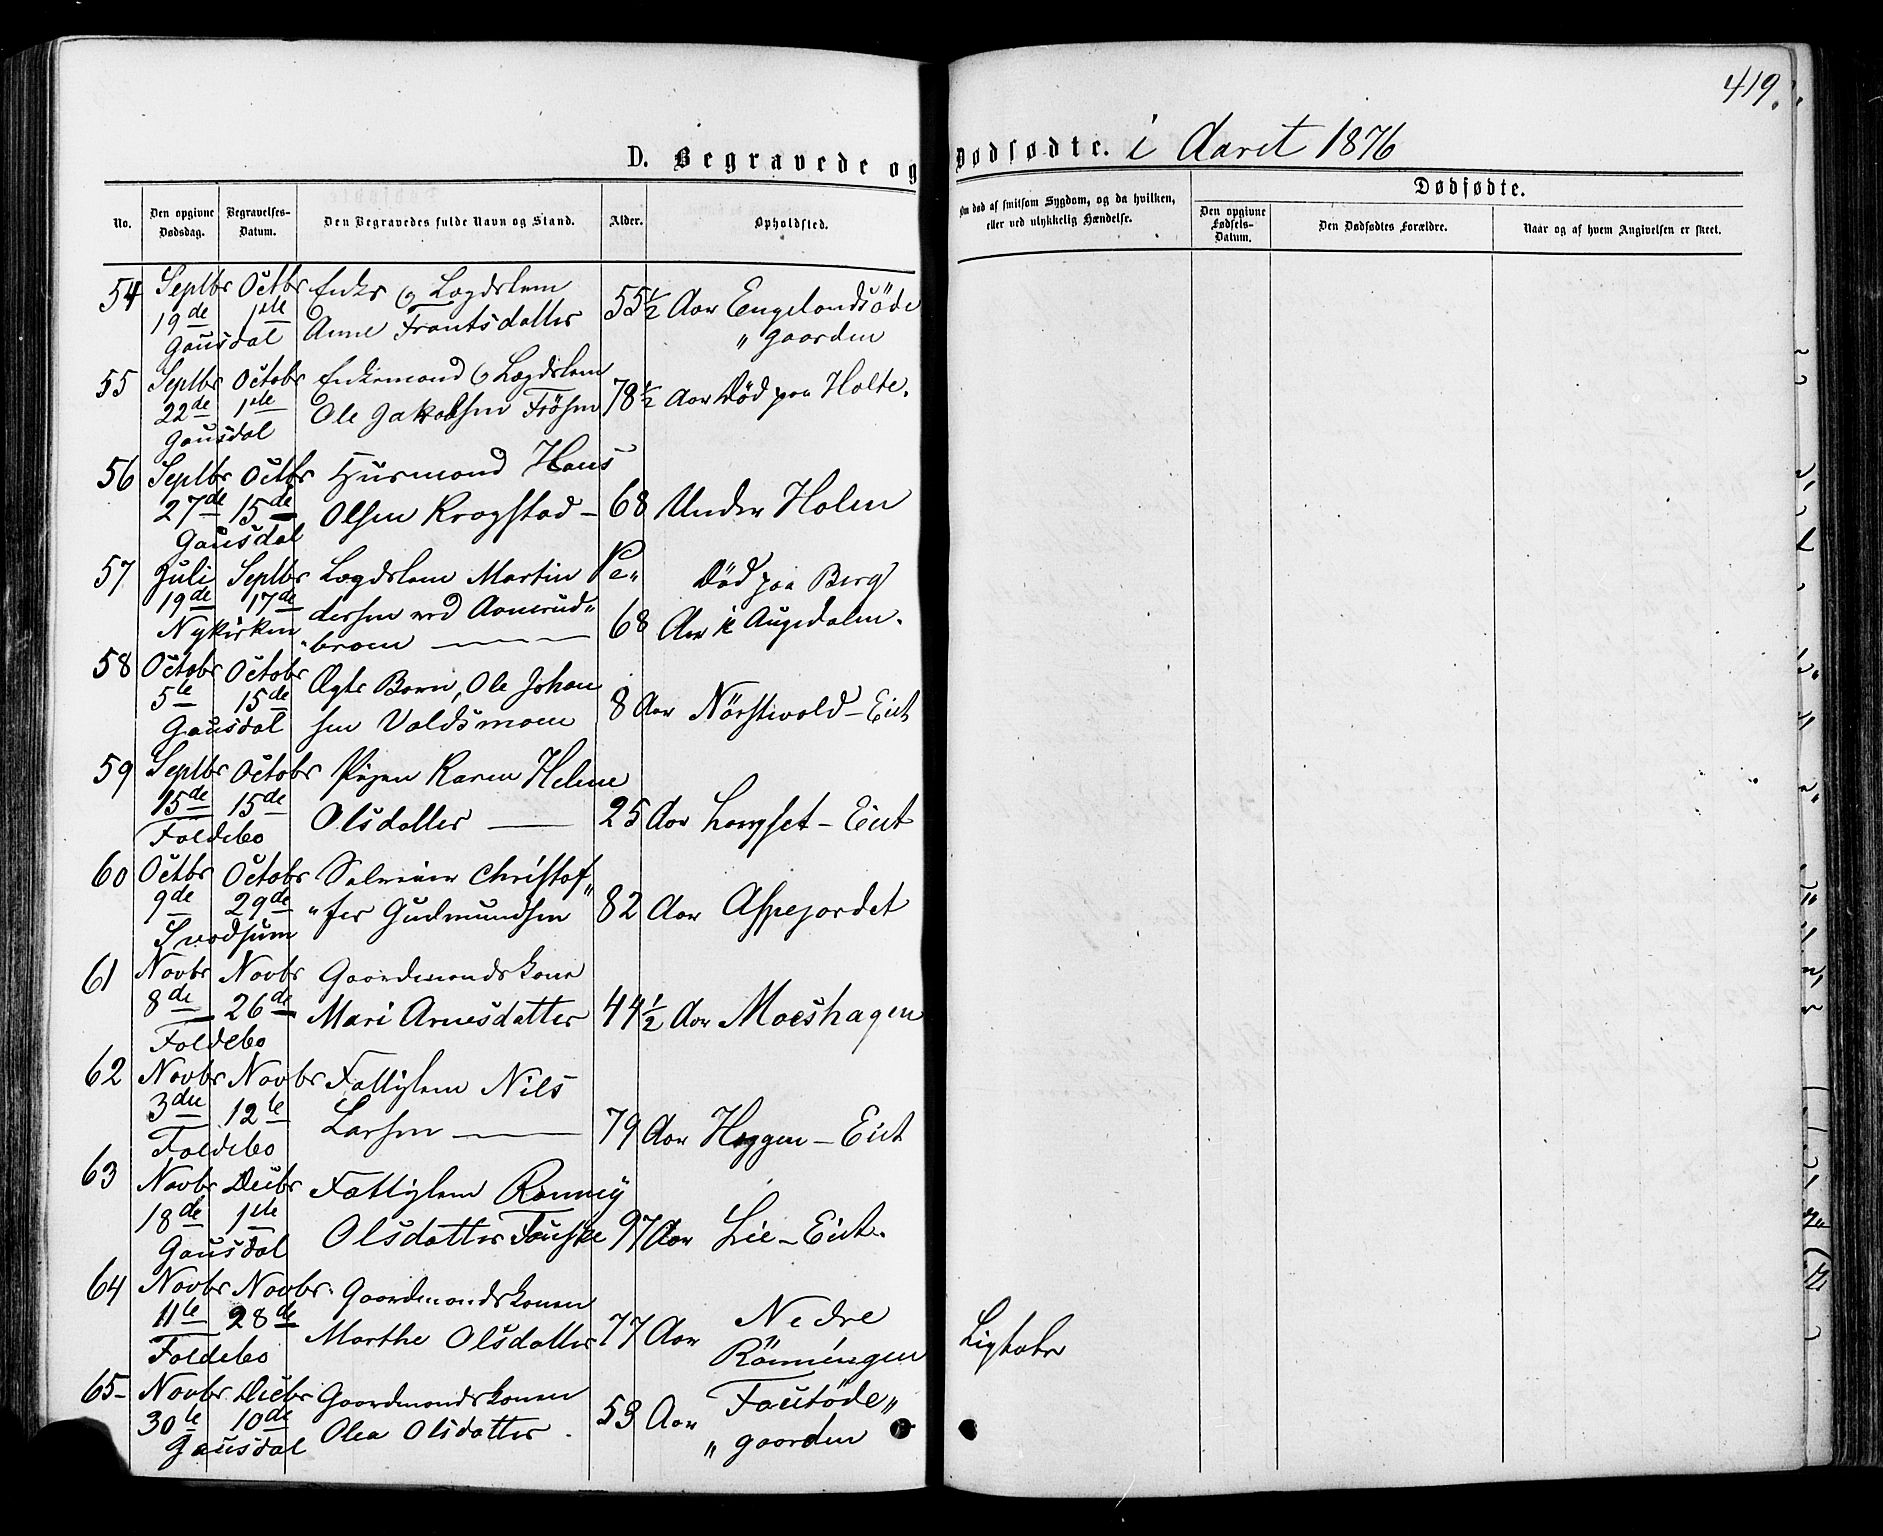 419.
D. Begravede og Dødfødte. i Aaret 1876
No.
Den opgivne Dødsdag.
Begravelses-Datum.
Den Begravedes fulde Navn og Stand.
Alder.
Opholdsted.
Om død af smitsom Sygdom, og da hvilken, eller ved ulykkelig Hændelse.
Dødfødte.
Den opgivne Fødsels-Datum.
Den Dødfødtes Forældre.
Naar og af hvem Angivelsen er skeet.
54 Septbr Octbr Enke og Lægdslem
19de 1ste Anne Frantsdatter 55½ Aar Engelandsøde
Gausdal „gaarden
55 Septbr Octobr Enkemand og Lægdslem
22de 1ste Ole Jakobsen Frösen 78½ Aar Död paa Holte.
Gausdal
56 Septbr Octbr Husmand Hans
27de 15de Olsen Kragstad – 68 Under Holen
Gausdal
57 Juli Septbr Lægdslem Martin Pe„ Död paa Berg
19de 17de dersen ved 68 Aar i Augedalen.
Nykirken „broen
58 Octobr Octobr Ægte Barn, Ole Johan
5te 15de sen Valdsmoen 8 Aar Nörstevold – Eiet
Gausdal
59 Septbr Octobr Pigen Karen Helene
15de 15de Olsdatter — 25 Aar Langset – Eiet
Foldebo
60 Octbr Octobr Christof„
9de 29de „fer Gudmundsen 82 Aar Aspejordet
Svadsum
61 Novbr Novbr Gaardmandskone
8de 26de Mari Arnesdatter 44½ Aar Moeshagen
Foldebo
62 Novbr Novbr Fattiglem Nils
3die 12te Larsen — 79 Aar Haggen – Eiet
Foldebo
63 Novbr Decbr Fattiglem Rönney
18de 1ste Olsdatter Fauske 97 Aar Lie – Eiet.
Gausdal
64 Novbr Novbr. Gaardmandskonen Nedre
11te 28de Marthe Olsdatter 77 Aar Rönningen
Foldebo
65 – Novbr Decbr Gaardmandskonen Fautöde„
30te 10de Olea Olsdatter. 53 Aar „gaarden
Gausdal